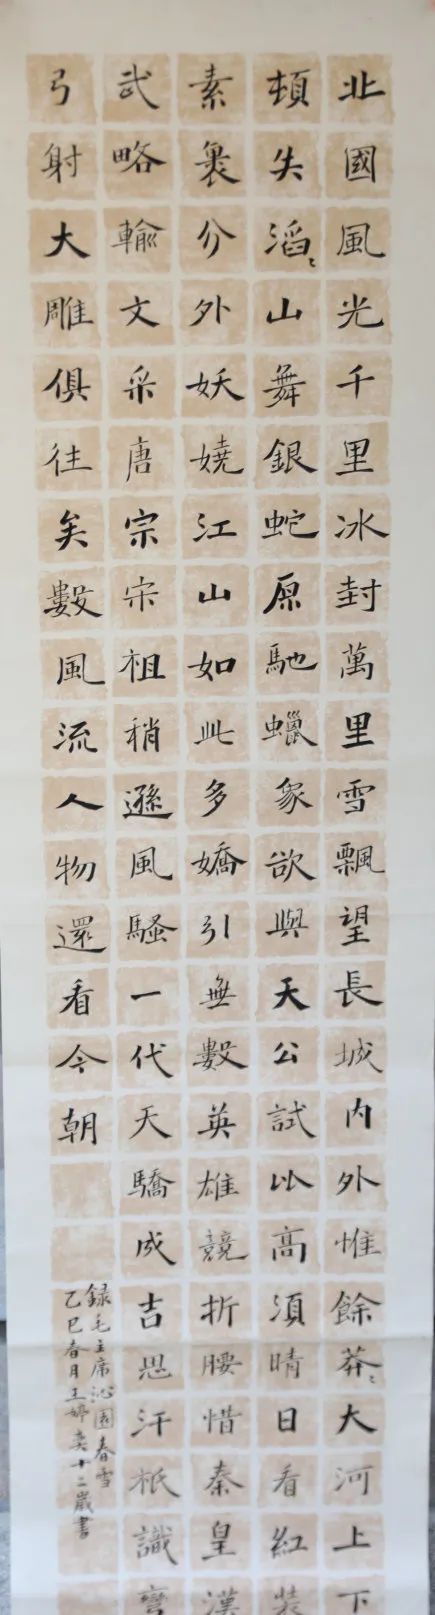 北國風光千里冰封萬里雪飄望長城内外惟餘莽〻大河上下
頓失滔〻山舞銀蛇原馳蠟象欲與天公試比高須晴日看紅裝
素裹分外妖嬈江山如此多嬌引無數英雄競折腰惜秦皇漢
武略輸文采唐宗宋祖稍遜風騷一代天驕成吉思汗祇識彎
弓射大雕俱往矣數風流人物還看今朝
録毛主席沁園春雪
乙巳春月王婷奕十二歲書